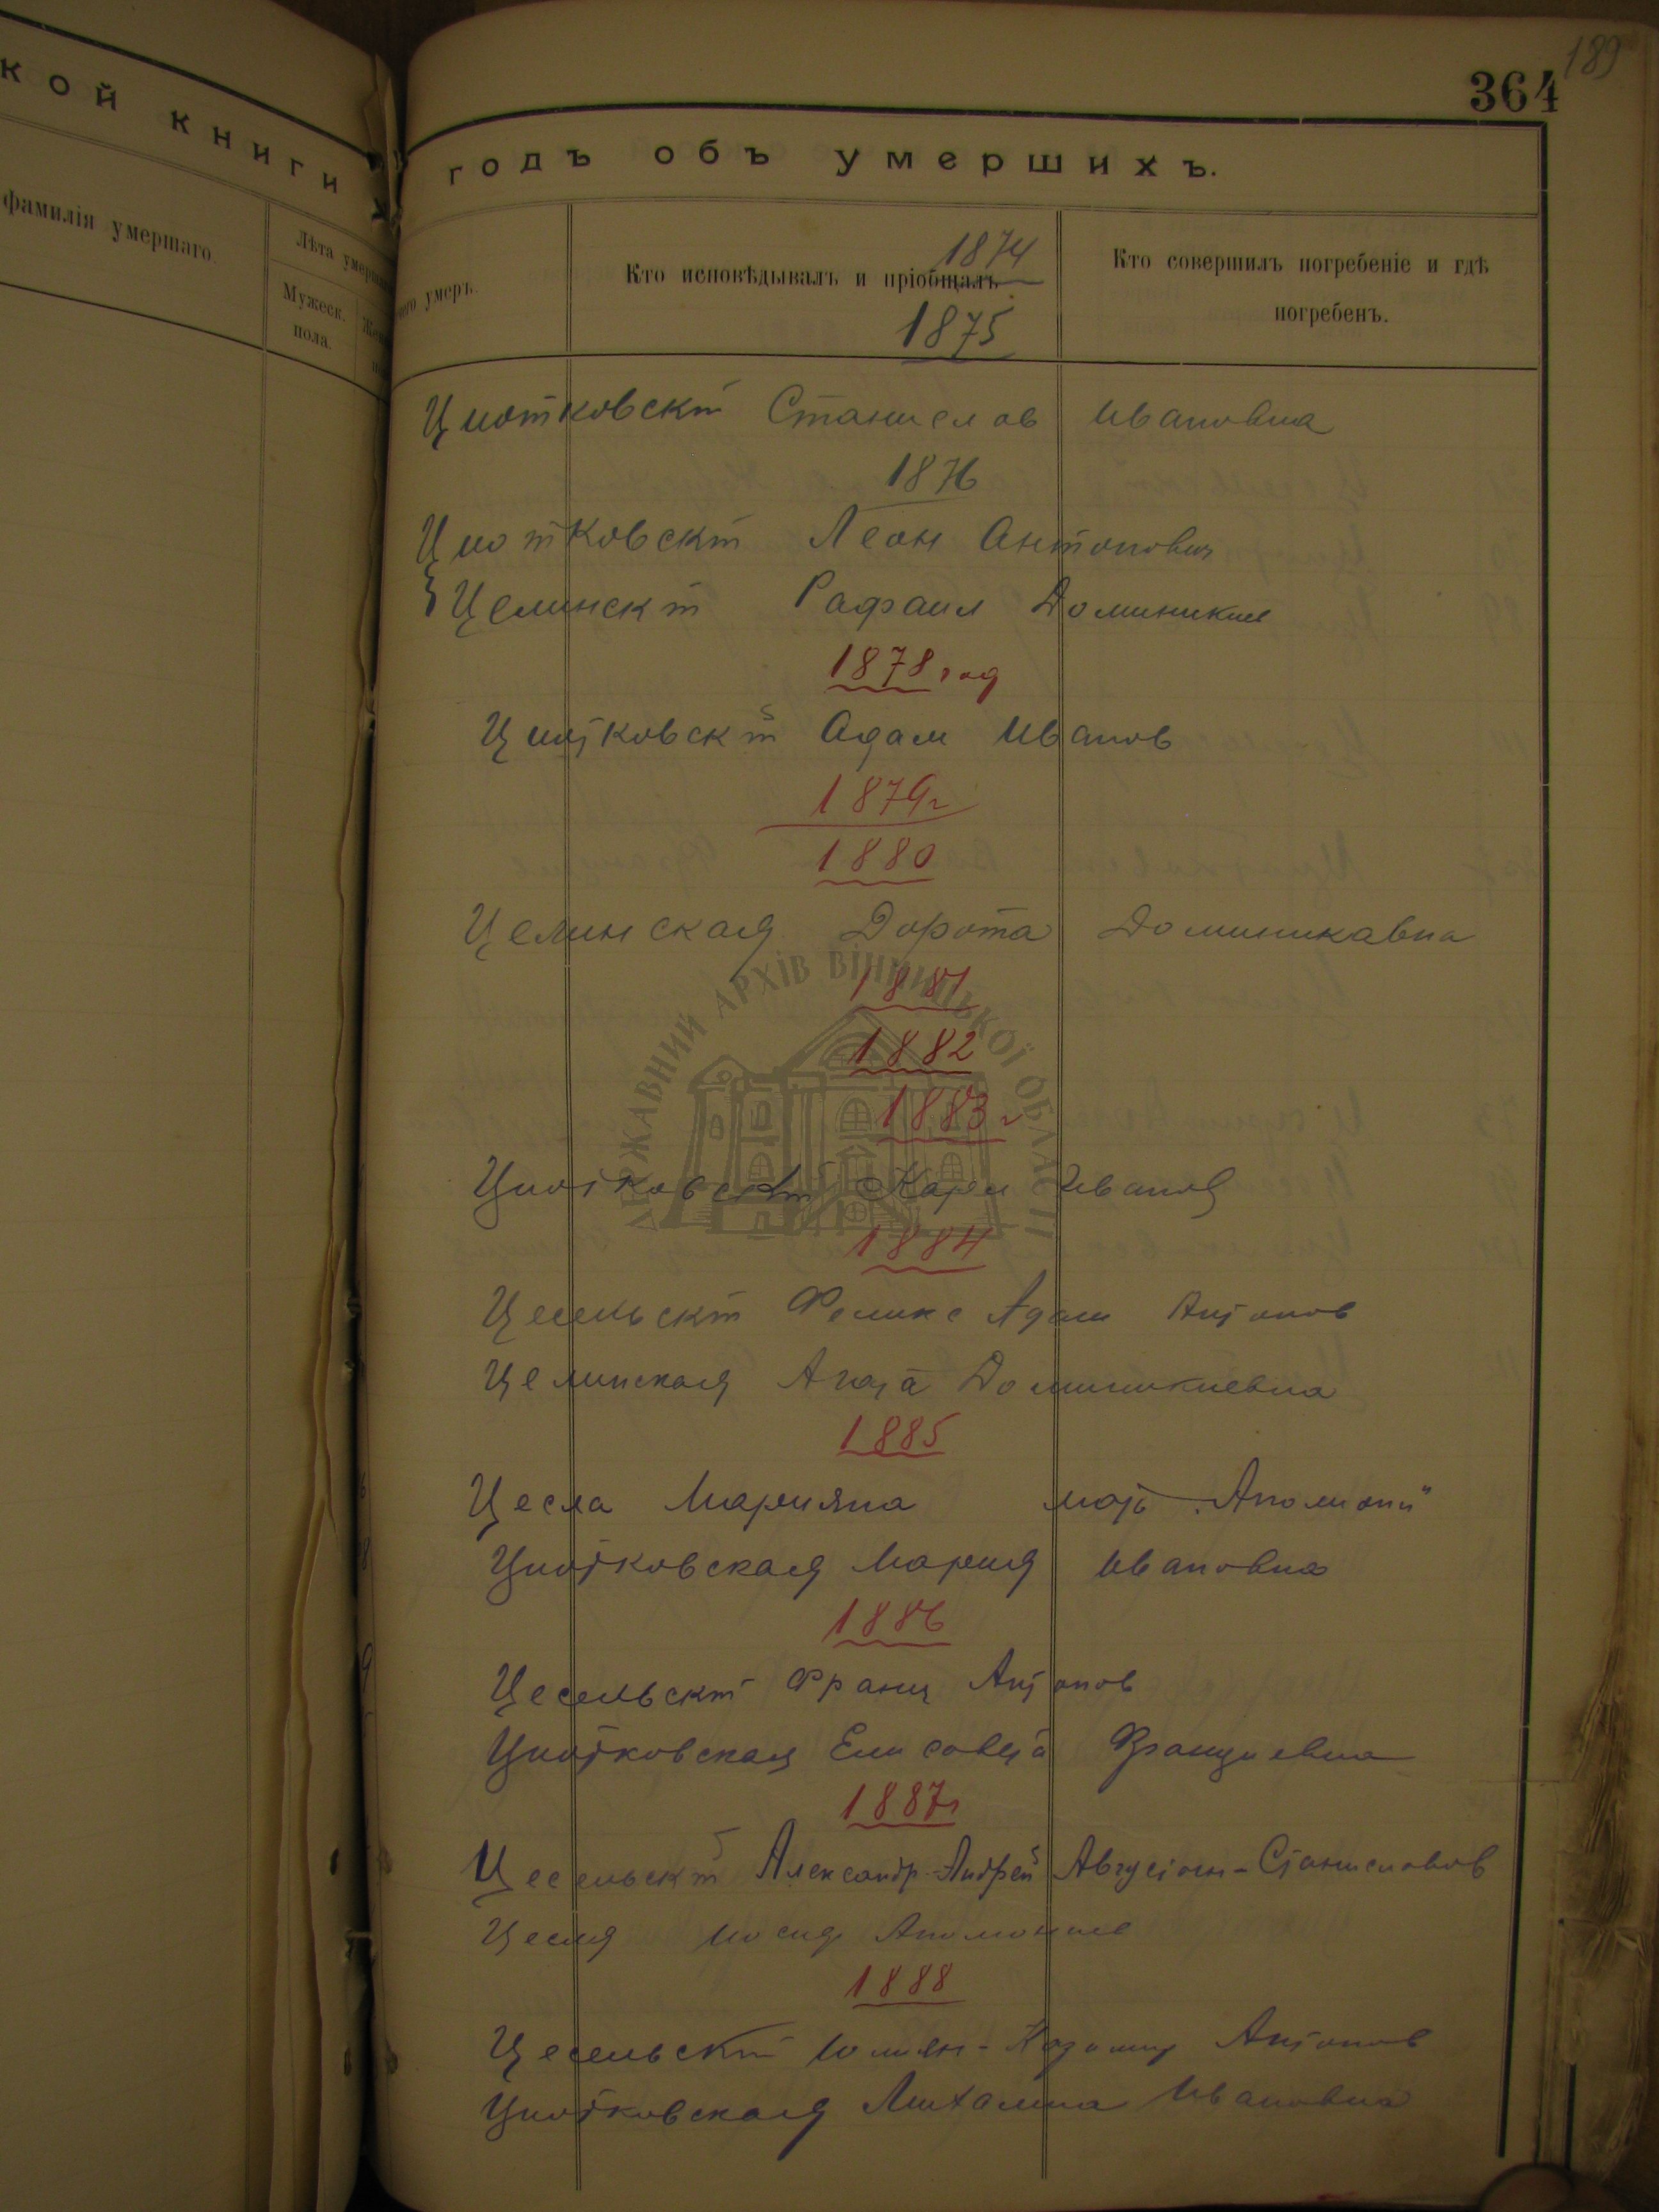 кой книги
фамилія умершаго.
Лѣта
Мужеск.
пола.
189
364
годъ объ умершихъ.
умеръ.
Кто исповѣдывалъ и пріобщалъ.
Кто совершилъ погребеніе и гдѣ
погребенъ.
1874
1875
Циотковскій Станислав Ивановна
1876
Циотковскій Леон Антонович
Целинскій Рафаил Доминикие
1878 год
Циотковскій Адам Иванов
1879г
1880
Целинская Дорота Доминикавна
1881
1882
1883г
Циотковскій Карл Иванов
1884
Цесельскій Феликс Адам Антонов
Целинская Агата Доминикиевна
1885
Цесла Марияна мать "Аполонии"
Циотковская Мария Ивановна
1886
Цесельскій Франц Антонов
Циотковская Елисовета Франциевна
1887г
Цесельскій Александр-Андрей Августин-Станиславов
Цесля Иосиф Аполониев
1888
Цесельскій Юлиян-Казимир Антонов
Циотковская Михалина Ивановна
ДЕРЖАВНИЙ АРХІВ ВІННИЦЬКОЇ ОБЛАСТІ